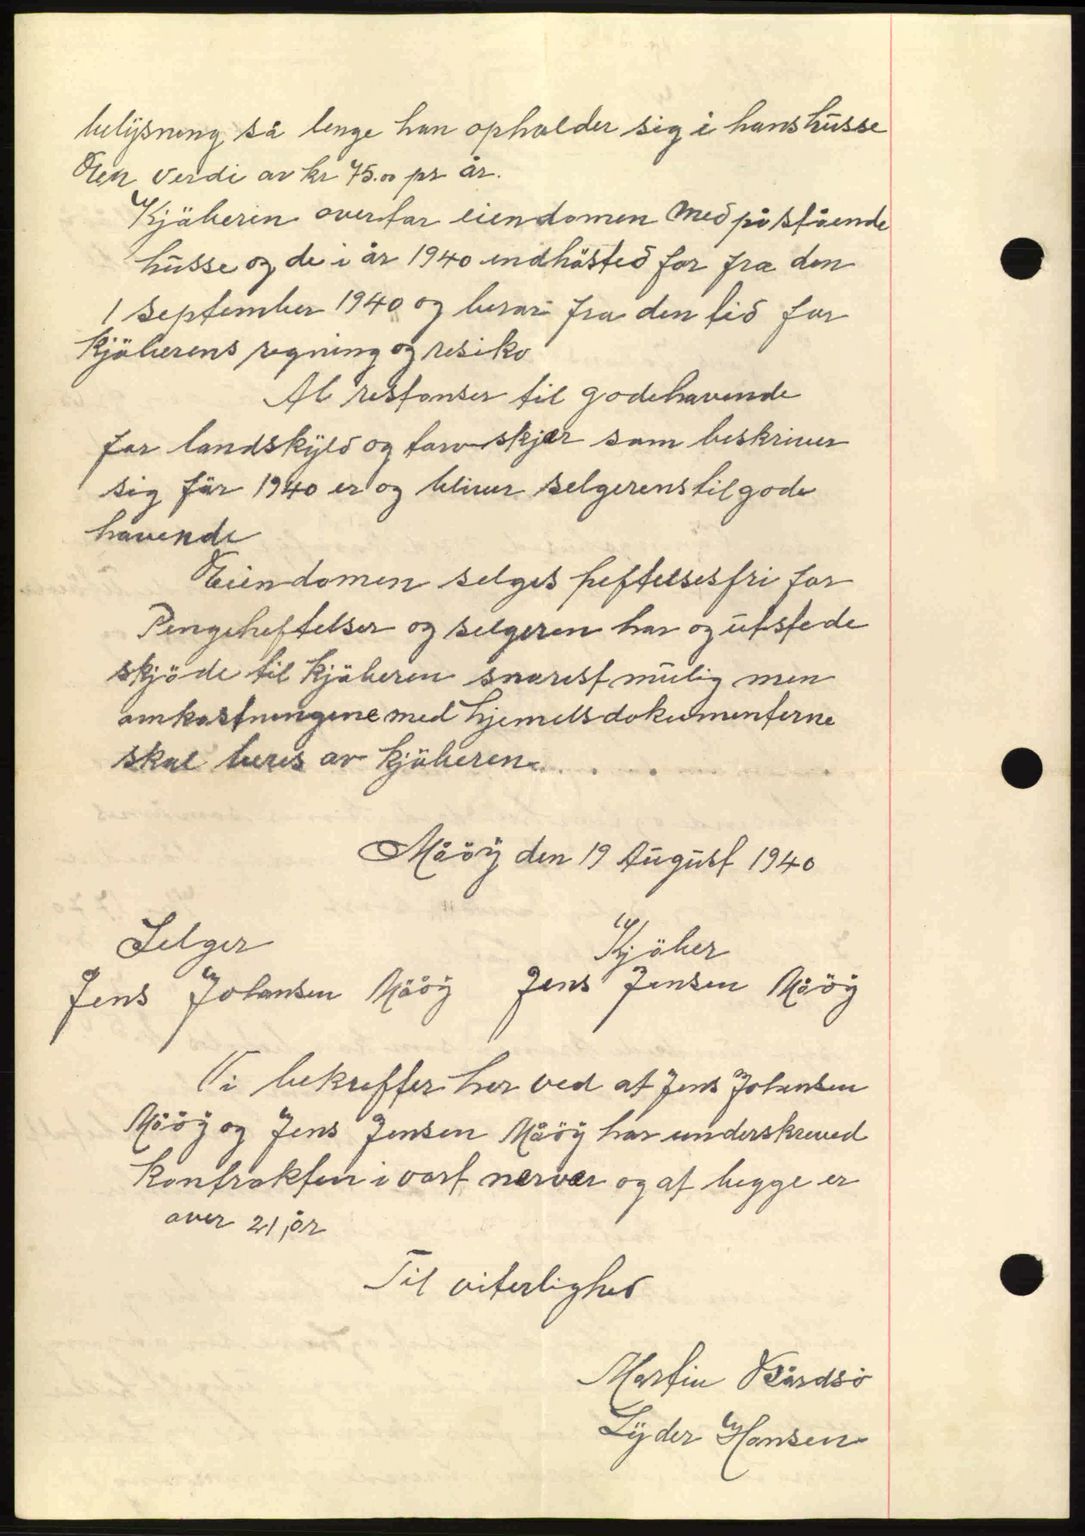 belysning så lenge han opholder sig i hans husse
Den verdi av kr 75.00 pr år.
Kjøberen overtar eiendomen med påstående
husse og de i år 1940 indhøsted for fra den
1 september 1940 og berar fra den tid for
kjøberens regning og resiko
Al restanser til godehavende
for landskyld og torvskjær som beskriver
sig før 1940 er og bliver selgerens tilgode
havende
Eiendomen selges heftelsesfri for
Pengeheftelser og selgeren har og utstede
skjøde til kjøberen snarest mulig men
omkostningene med hjemelsdokumenterne
skal beres av kjøberen.
Måøy den 19 August 1940
Selger Kjøber
Jens Johansen Måøy Jens Jensen Måøy
Vi bekrefter her ved at Jens Johansen
Måøy og Jens Jensen Måøy har underskreved
Kontrakten i vort nærvær og at begge er
over 21, år
Til viterlighed
Martin Bårdsø
Lyder Hansen